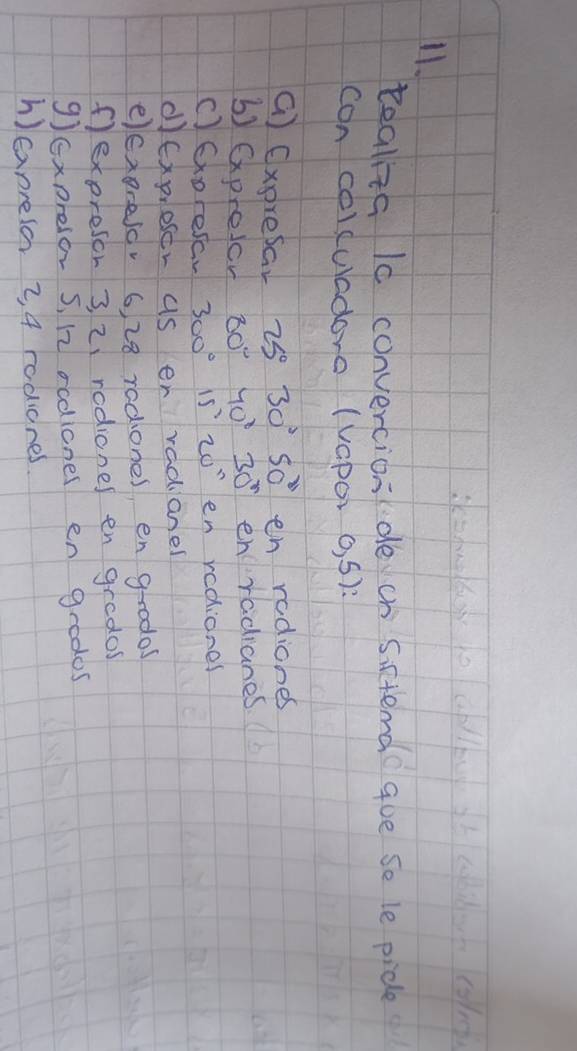 11.
Realiza la converción de un sistema que se le pide
con calculadora (vapor 0,5):
a) Expresar 25° 30' 50" en radianes
b) Expresar 80° 40' 30" en radianes
c) Expresar 300° 15' 20" en radianes
d) Expresar 45 en radianes
e) Expresar 6,28 radianes en grados
f) expresar 3,21 radianes en grados
g) Expresar 5,12 radianes en grados
h) Expresar 2,4 radianes.